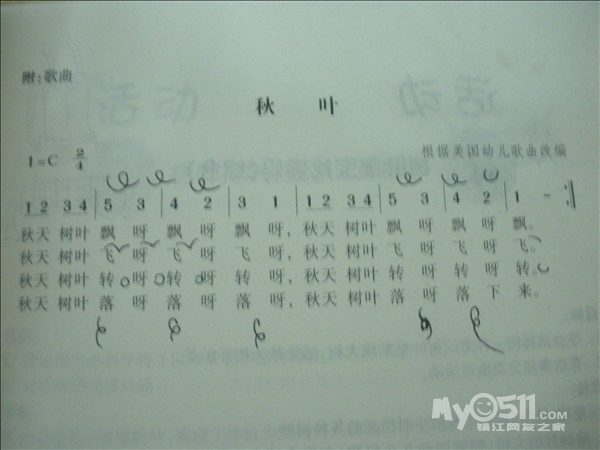 附:歌曲
秋 叶
1=C 2/4
根据美国幼儿歌曲改编
1 2 3 4 | 5 3 | 4 2 | 3 1 | 1 2 3 4 | 5 3 | 4 2 | 1 - :‖
秋天 树叶 飘 呀 飘 呀 飘 呀, 秋天 树叶 飘 呀 飘 呀 飘。
秋天 树叶 飞 呀 飞 呀 飞 呀, 秋天 树叶 飞 呀 飞 呀 飞。
秋天 树叶 转 呀 转 呀 转 呀, 秋天 树叶 转 呀 转 呀 转。
秋天 树叶 落 呀 落 呀 落 呀, 秋天 树叶 落 呀 落 下 来。
My0511.com
镇江网友之家